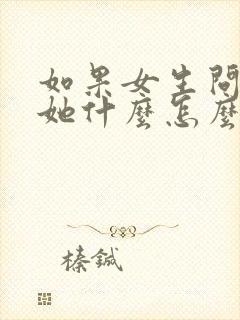 如果女生問
她什麼怎麼
榛鋮